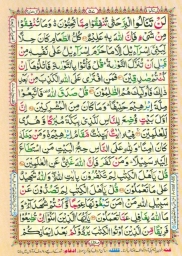 لَنْ تَنَالُوا الْبِرَّ حَتّٰى تُنْفِقُوْا مِمَّا تُحِبُّوْنَ وَمَا تُنْفِقُوْا
مِنْ شَيْءٍ فَاِنَّ اللّٰهَ بِهٖ عَلِيْمٌ كُلُّ الطَّعَامِ كَانَ حِلًّا
لِّبَنِيْۤ اِسْرَآءِيْلَ اِلَّا مَا حَرَّمَ اِسْرَآءِيْلُ عَلٰى نَفْسِهٖ مِنْ
قَبْلِ اَنْ تُنَزَّلَ التَّوْرٰىةُ قُلْ فَاْتُوْا بِالتَّوْرٰىةِ فَاتْلُوْهَاۤ اِنْ
كُنْتُمْ صٰدِقِيْنَ فَمَنِ افْتَرٰى عَلَى اللّٰهِ الْكَذِبَ مِنْۢ بَعْدِ
ذٰلِكَ فَاُولٰٓئِكَ هُمُ الظّٰلِمُوْنَ قُلْ صَدَقَ اللّٰهُ فَاتَّبِعُوْا مِلَّةَ
اِبْرٰهِيْمَ حَنِيْفًا وَمَا كَانَ مِنَ الْمُشْرِكِيْنَ اِنَّ اَوَّلَ
بَيْتٍ وُّضِعَ لِلنَّاسِ لَلَّذِيْ بِبَكَّةَ مُبٰرَكًا وَّهُدًى
لِّلْعٰلَمِيْنَ فِيْهِ اٰيٰتٌۢ بَيِّنٰتٌ مَّقَامُ اِبْرٰهِيْمَ وَمَنْ دَخَلَهٗ
كَانَ اٰمِنًا وَلِلّٰهِ عَلَى النَّاسِ حِجُّ الْبَيْتِ مَنِ اسْتَطَاعَ
اِلَيْهِ سَبِيْلًا وَمَنْ كَفَرَ فَاِنَّ اللّٰهَ غَنِيٌّ عَنِ الْعٰلَمِيْنَ
قُلْ يٰۤاَهْلَ الْكِتٰبِ لِمَ تَكْفُرُوْنَ بِاٰيٰتِ اللّٰهِ وَاللّٰهُ شَهِيْدٌ
عَلٰى مَا تَعْمَلُوْنَ قُلْ يٰۤاَهْلَ الْكِتٰبِ لِمَ تَصُدُّوْنَ عَنْ
سَبِيْلِ اللّٰهِ مَنْ اٰمَنَ تَبْغُوْنَهَا عِوَجًا وَّاَنْتُمْ شُهَدَآءُ وَمَا
اللّٰهُ بِغَافِلٍ عَمَّا تَعْمَلُوْنَ يٰۤاَيُّهَا الَّذِيْنَ اٰمَنُوْۤا اِنْ تُطِيْعُوْا
فَرِيْقًا مِّنَ الَّذِيْنَ اُوْتُوا الْكِتٰبَ يَرُدُّوْكُمْ بَعْدَ اِيْمَانِكُمْ